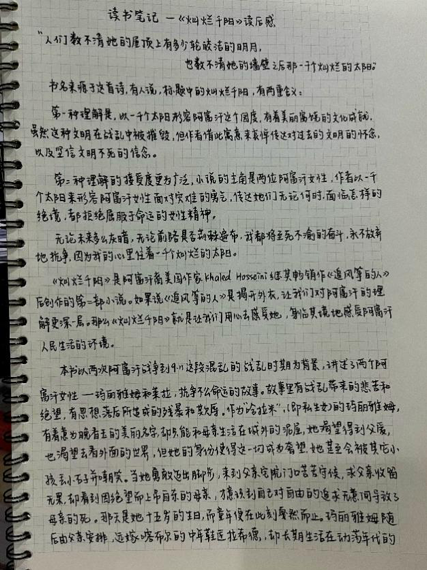 读书笔记 —《灿烂千阳》读后感
"人们数不清她的屋顶上有多少轮皎洁的明月,
也数不清她的墙壁之后那一千个灿烂的太阳。"
书名来源于这首诗,有人说,标题中的灿烂千阳,有两重含义:
第一种理解是,以一千个太阳形容阿富汗这个国度,有着美丽富饶的文化成就,
虽然这种文明在战乱中被摧毁,但作者借此寓意来寄悼传达对过去的文明的怀念,
以及坚信文明不死的信念。
第二种理解的接受度更为广泛,小说的主角是两位阿富汗女性,作者以一千
个太阳来形容阿富汗女性面对灾难的勇气,传达她们无论何时,面临怎样的
绝境,都拒绝屈服于命运的女性精神。
无论未来多么灰暗,无论前路是否荆棘遍布,我都将至死不渝的奋斗,永不放弃
地抗争,因为我的心里住着一千个灿烂的太阳。
《灿烂千阳》是阿富汗裔美国作家Khaled Hosseini继其畅销作《追风筝的人》
后创作的第二部小说。如果说《追风筝的人》是揭开外衣,让我们对阿富汗的理
解更深一层。那么《灿烂千阳》就是让我们用心去感受她,身临其境地感受阿富汗
人民生活的环境。
本书以两次阿富汗战争到9·11这段混乱的战乱时期为背景,讲述了两个阿
富汗女性—玛丽雅姆和莱拉,抗争不公命运的故事。故事里有战乱带来的悲苦和
绝望,有思想落后所造成的残暴和欺辱。作为"哈拉米",(即私生女)的玛丽雅姆,
有着意为晚香玉的美丽名字,却只能和母亲生活在城外的泥屋,她渴望得到父爱,
也渴望去看外面的世界,但她的身份使得这一切成为奢望,她甚至会被其它小
孩扔石子并嘲笑。当她勇敢迈出脚步,来到父亲宅院门口苦苦守候,求父亲收留
无果,却看到因绝望而上吊自杀的母亲,才意识到自己对自由的追求无意间导致了
母亲的死。那天是她十五岁的生日,而童年便在此刻戛然而止。玛丽雅姆随
后由父亲安排,远嫁喀布尔的中年鞋匠拉希德,却长期生活在动荡年代的